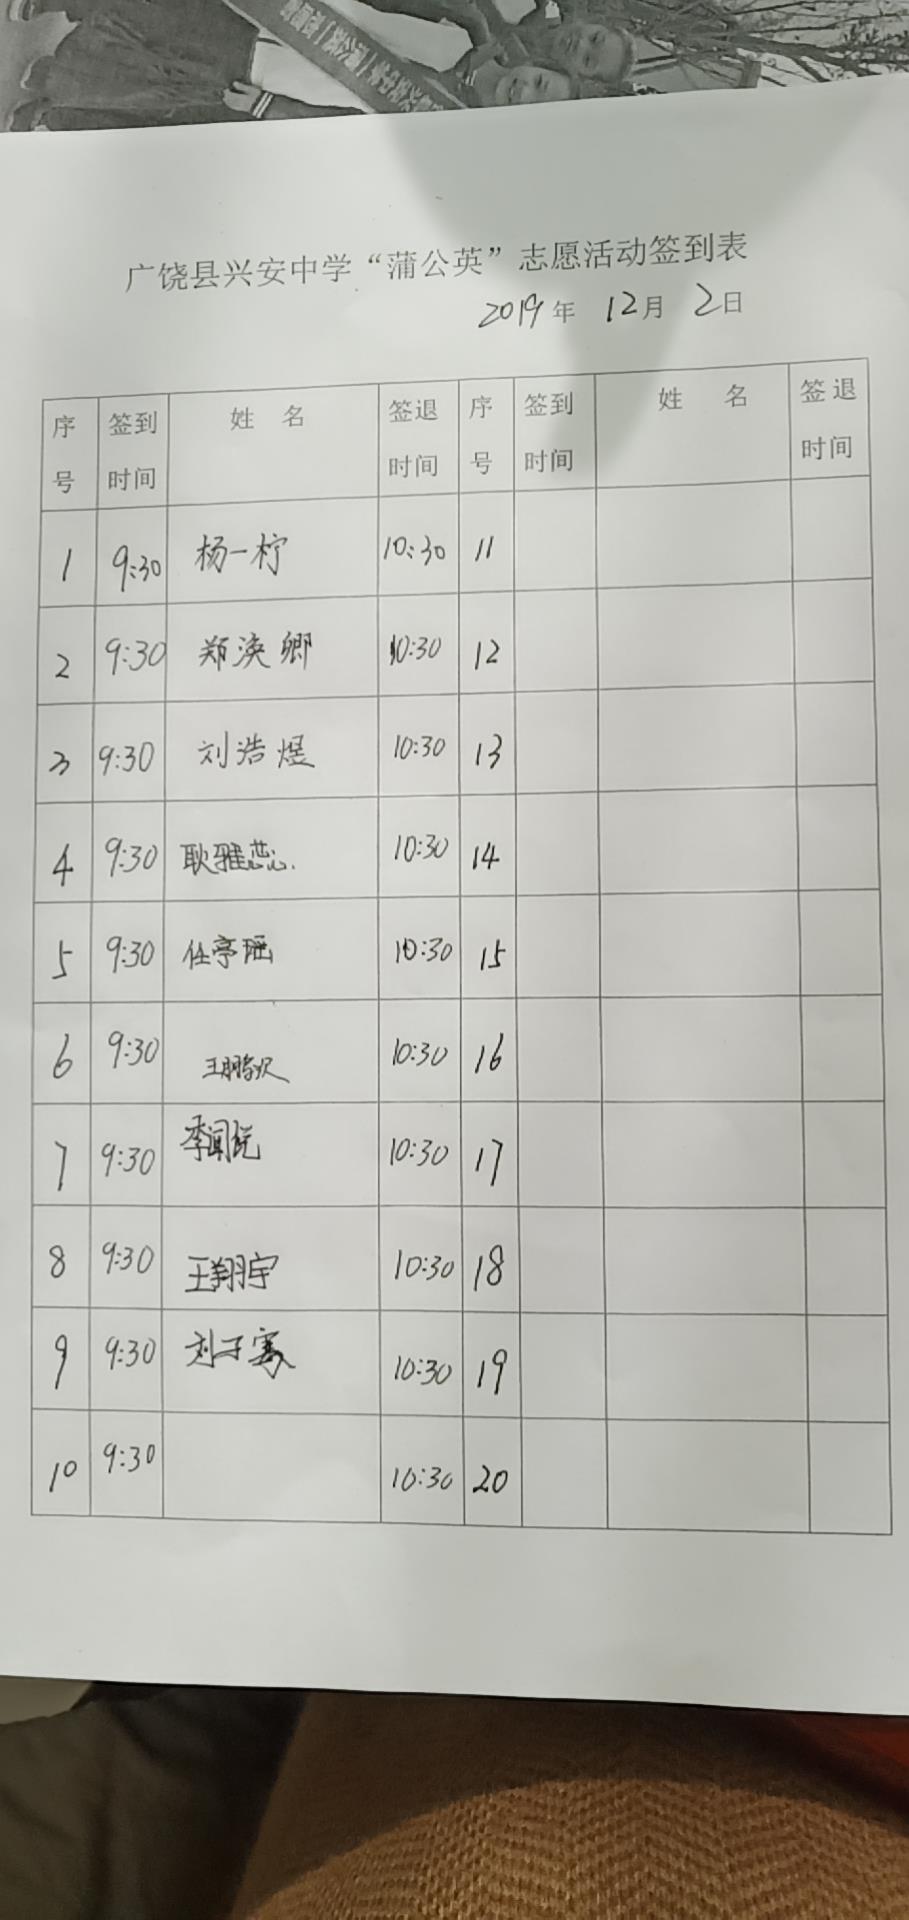 广饶县兴安中学“蒲公英”志愿活动签到表
2019年 12月 2日
序号 签到时间 姓 名 签退时间 序号 签到时间 姓 名 签退时间
1 9:30 杨一柠 10:30 11
2 9:30 郑涣卿 10:30 12
3 9:30 刘浩煜 10:30 13
4 9:30 耿雅蕊 10:30 14
5 9:30 任亭瑶 10:30 15
6 9:30 10:30 16
7 9:30 李闻悦 10:30 17
8 9:30 王翔宇 10:30 18
9 9:30 刘子骞 10:30 19
10 9:30 10:30 20